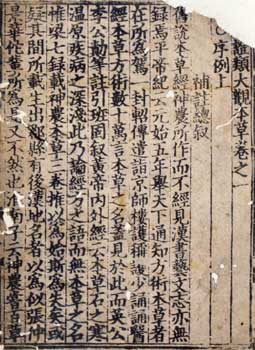 證類大觀本草卷之一
序例上
補註總叙
舊說本草經神農所作而不經見漢書藝文志亦無
錄焉平帝紀云元始五年舉天下通知方術本草者
在所為駕一封軺傳遣詣京師樓護傳稱護少誦醫
經本草方術數十萬言本草之名蓋見於此而英公
李勣等註引班固叙黃帝內外經云本草石之寒
溫原疾病之深淺此乃論經方之語而無本草之名
惟梁七錄載神農本草三卷推以為始斯為失矣或
疑其間所載生出郡縣有後漢地名者以為似張仲
景華佗輩所為是又不然也淮南子云神農嘗百草